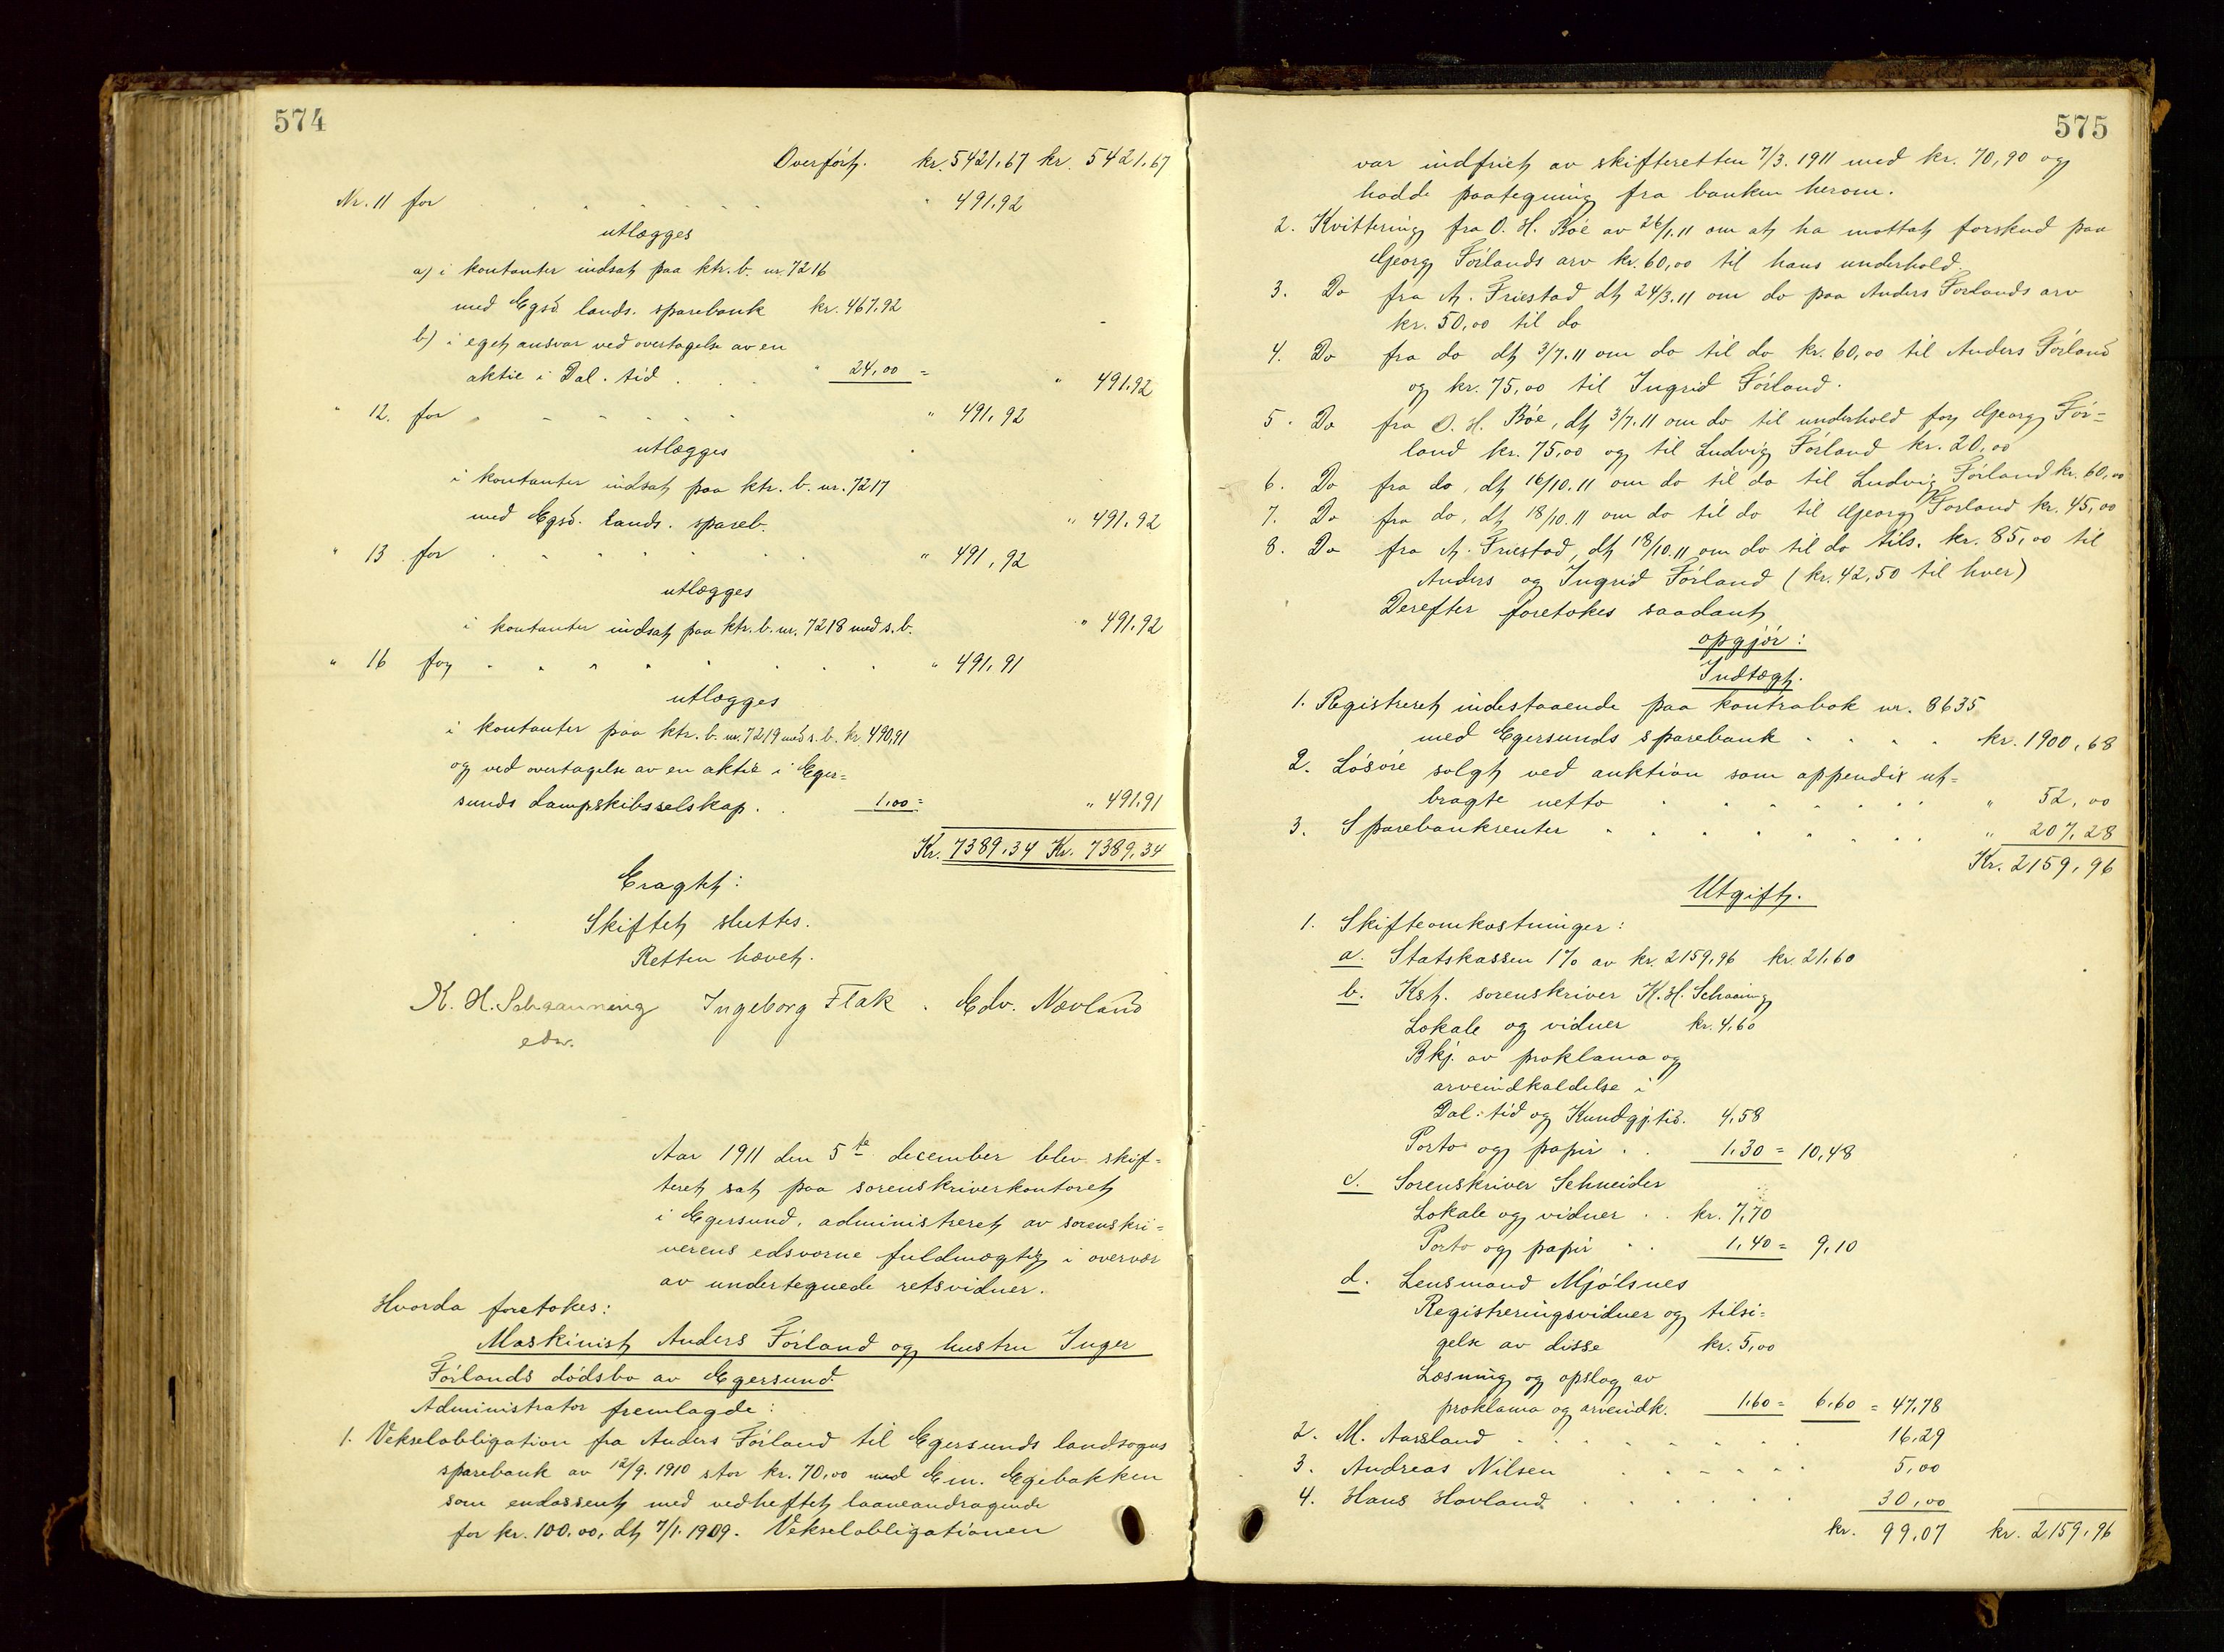 574
Overført. kr. 5421.67 kr. 5421.67
Nr. 11 for " 491.92
utlægges
a) i kontanter indsat paa ktr. b. nr. 7216
med Egsd. lands. sparebank kr. 467.92
b) i eget ansvar ved overtagelse av en
aktie i Dal. tid . . " 24,00 = " 491.92
" 12. for " 491.92
utlægges
i kontanter indsat paa ktr. b. nr. 7217
med Egsd. lands. spareb. " 491.92
" 13 for " 491.92
utlægges
i kontanter indsat paa ktr. b. nr. 7218 med s. b. " 491.92
" 16 for " 491.91
utlægges
i kontanter paa ktr. b. nr. 7219 med s. b. kr. 490,91
og ved overtagelse av en aktie i Eger=
sunds Dampskibsselskap. . 1.00 = " 491.91
Kr. 7389.34 Kr. 7389.34
Eragtet:
Skiftet sluttes.
Retten hævet.
K. H. Schaanning Ingeborg Flak. Edv. Nævland
edsv.
Aar 1911 den 5te december blev skif=
teret sat paa sorenskriverkontoret
i Egersund, administreret av sorenskri=
verens edsvorne fuldmægtig i overvær
av undertegnede retsvidner.
Hvorda foretokes:
Maskinist Anders Førland og hustru Inger
Førlands dødsbo av Egersund.
Administrator fremlagde:
1. Vekselobligation fra Anders Førland til Egersunds landsogns
sparebank av 12/9. 1910 stor kr. 70,00 med Em. Egebakken
som endossent med vedheftet laaneandragende
for kr. 100.00, dt 7/1. 1909. Vekselobligationen
575
var indfriet av skifteretten 7/3. 1911 med kr. 70,90 og
hadde paategning fra banken herom.
2. Kvittering fra O. H. Bøe av 26/1.11 om at ha mottat forskud paa
Georg Førlands arv kr. 60,00 til hans underhold.
3. Do fra A. Friestad dt 24/3.11 om do paa Anders Førlands arv
kr. 50,00 til do
4. Do fra do dt 3/7.11 om do til do kr. 60,00 til Anders Førland
og kr. 75,00 til Ingrid Førland.
5. Do fra O. H. Bøe, dt 3/7.11 om do til underhold for Georg Før=
land kr. 75,00 og til Ludvig Førland kr. 20,00
6. Do fra do, dt 16/10.11 om do til do til Ludvig Førland kr. 60,00
7. Do fra do, dt 18/10.11 om do til do til Georg Førland kr. 45,00
8. Do fra A. Friestad, dt 18/10.11 om do til do tils. kr. 85,00 til
Anders og Ingrid Førland (kr. 42,50 til hver)
Derefter foretokes saadant
opgjør:
Indtægt.
1. Registreret indestaaende paa kontrabok nr. 8635
med Egersunds sparebank . . . . kr. 1900,68
2. Løsøre solgt ved auktion som appendix ut=
bragte netto " 52,00
3. Sparebankrenter " 207,28
Kr. 2159,96
Utgift.
1. Skifteomkostninger:
a. Statskassen 1% av kr. 2159,96 kr. 21.60
b. Kst. sorenskriver K. H. Schaaning
Lokale og vidner kr. 4,60
Bkj. av proklama og
arveindkaldelse i
Dal. tid og Kundgj.tid. 4,58
Porto og papir . . 1,30 = 10,48
c. Sorenskriver Schneider
Lokale og vidner . . kr. 7,70
Porto og papir . . 1,40 = 9,10
d. Lensmand Mjølsnes
Registreringsvidner og tilsi=
gelse av disse kr. 5,00
Læsning og opslag av
proklama og arveindk. 1.60 = 6.60 = 47,78
2. M. Aarsland 16,29
3. Andreas Nilsen 5,00
4. Hans Hovland. 30,00
kr. 99,07 kr. 2159,96